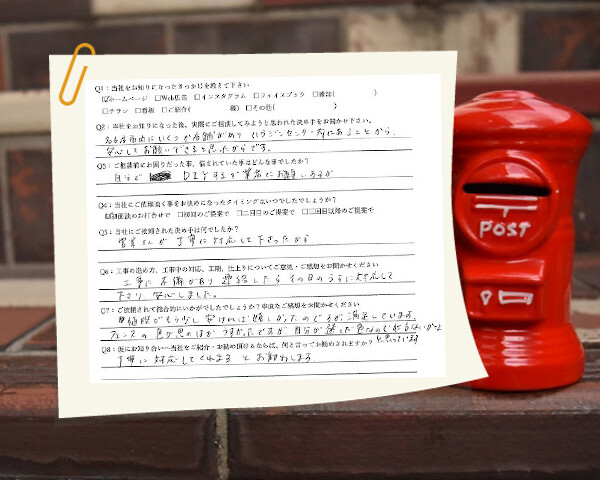 Q1：当社をお知りになったきっかけを教えて下さい
☑ホームページ □Web広告 □インスタグラム □フェイスブック □雑誌( )
□チラシ □看板 □ご紹介( 様) □その他( )
Q2：当社をお知りになった後、実際にご相談してみようと思われた決め手をお聞かせ下さい。
名古屋市内にいくつか店舗があり、ガーデンセンター内にあることから、
安心してお願いできると思ったからです。
Q3：ご相談前にお困りだった事、悩まれていた事はどんな事でしたか？
自分で DIYするか業者にお願いするか
Q4：当社にご依頼頂く事をお決めになったタイミングはいつでしたでしょうか？
☑初回面談のお打合せで □初回のご提案で □二回目のご提案で □三回目以降のご提案で
Q5：当社にご依頼された決め手は何でしたか？
営業さんが丁寧に対応して下さったから
Q6：工事の進め方、工事中の対応、工期、仕上りについてご意見・ご感想をお聞かせください
工事に不備があり連絡したらその日のうちに対応して
下さり、安心しました。
Q7：ご依頼されて総合的にいかがでしたでしょうか？率直なご感想をお聞かせください
値段がもう少し安ければ嬉しかったのですが満足しています。
フェンスの色が思いのほかうすかったですが自分が選んだ色なので
と思っています
Q8：仮にお知り合いへ当社をご紹介・お勧め頂けるならば、何と言ってお勧めされますか？
丁寧に対応してくれますとお勧めします。
POST